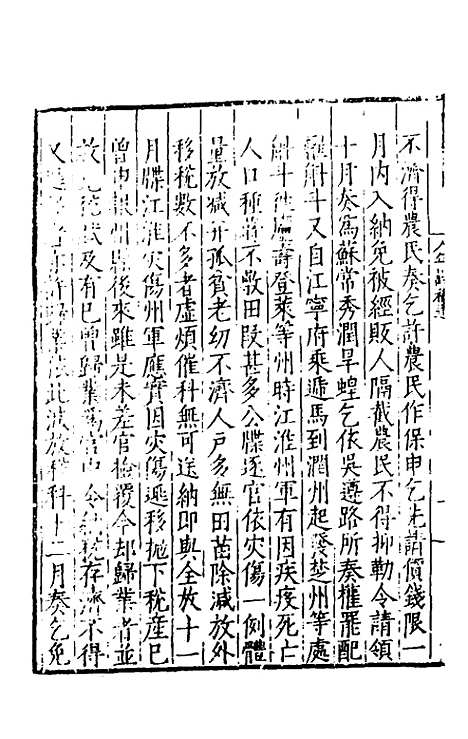 不濟得農民奏乞許農民作保申乞先請價錢限一
月内入納免被經販人隔截農民不得抑勒令請領
十月奏爲蘇常秀潤旱蝗乞依吳遵路所奏權罷配
糴斛斗又自江寧府乘遞馬到潤州起發楚州等處
斛斗往廬壽登萊等州時江淮州軍有因疾疫死亡
人口種蒔不敷田段甚多公牒逐官依灾傷一例體
量放減并孤貧老幼不濟人户多無田苗除減放外
移稅數不多者虛煩催科無可送納即與全放十一
月牒江淮灾傷州軍應實因灾傷逃移拋下稅産已
曾申報州縣後來雖是未差官檢覆今却歸業者並
放免稅賦及有已曾歸業爲官中令納稅存濟不得
又逃者亦許歸業依此減放稅科十二月奏乞免